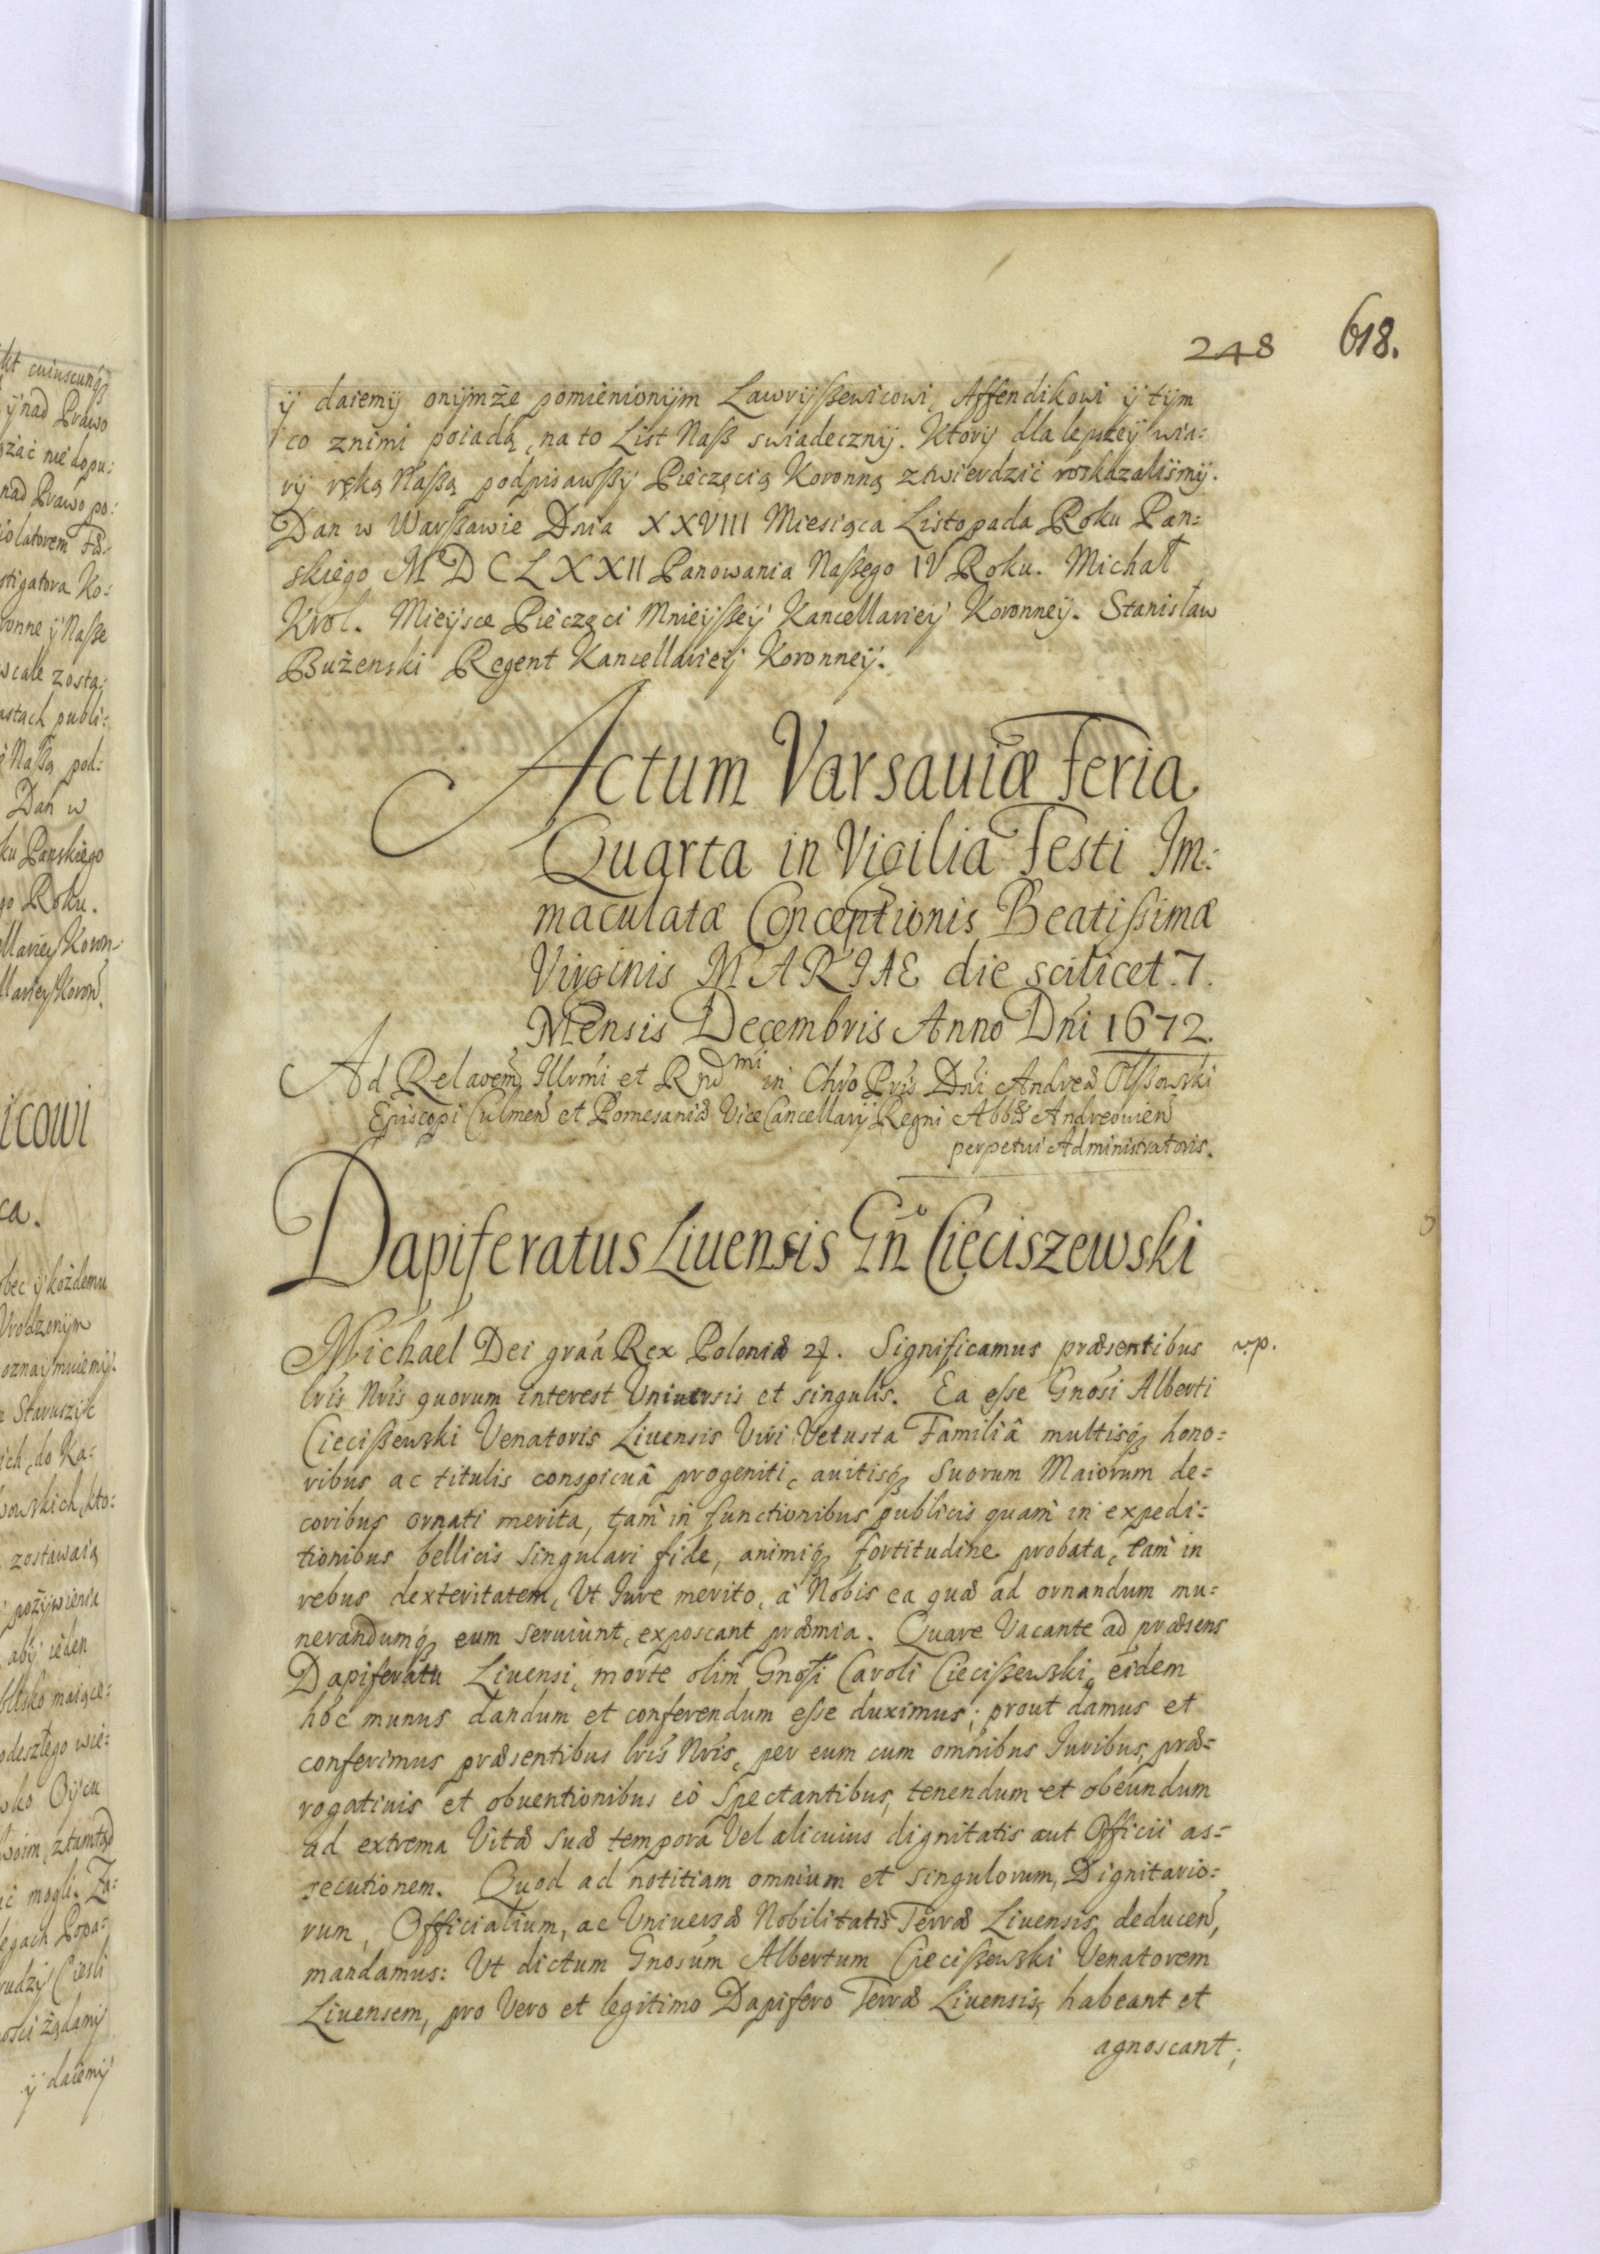 248 618.
ÿ daiemÿ onÿmże pomienionÿm Lawrÿßewicowi, Affendikowi ÿ tÿm
co znimi poiadą, na to List Naß swiadecznÿ. Ktorÿ dla lepszeÿ wia-
rÿ ręką Naßą podpisawßÿ Pieczęcią Koronną ztwierdzić roskazalismÿ.
Dan w Warßawie Dnia XXVIII Miesiąca Listopada Roku Pan-
skiego MDCLXXII Panowania Naßego IV Roku. Michał
Krol. Mieÿsce Pieczęci Mnieÿßeÿ Kancellarieÿ Koronneÿ. Stanisław
Bużenski Regent Kancellarieÿ Koronneÿ.
Actum Varsauiæ Feria
Quarta in Vigilia Festi Im-
maculatæ Conceptionis Beatißimæ
Virginis MARIAE die scilicet 7.
Mensis Decembris Anno Dńi 1672.
Ad Relaoem Illrmi et Rndmi in Chro Pris Dńi Andreæ Olßowski
Episcopi Culmeń et Pomesaniæ Vice Cancellarij Regni Abbis Andreouień
perpetui Administratoris.
Dapiferatus Liuensis Gńo Cięciszewski
Michael Dei graá Rex Poloniæ 2ƒ. Significamus præsentibus v.p.
lris Nris quorum interest Vniuersis et singulis. Ea eße Gnosi Alberti
Ciecißewski Venatoris Liuensis Viri Vetusta Familiâ multisq hono-
ribus ac titulis conspicuâ progeniti, auitisq Suorum Maiorum de-
coribus ornati merita, tam in functionibus publicis quam in expedi-
tionibus bellicis singulari fide, animiq fortitudine probata, eam in
rebus dexteritatem, Vt Iure merito, a Nobis ea quæ ad ornandum mu-
nerandumq eum seruiunt, exposcant præmia. Quare Vacante ad præsens
Dapiferatu Liuensi, morte olim Gnosi Caroli Ciecißewski, eidem
hoc munus dandum et conferendum eße duximus; prout damus et
conferimus præsentibus lris Nris, per eum cum omnibus Iuribus, præ-
rogatiuis et obuentionibus eò Spectantibus, tenendum et obeundum
ad extrema Vitæ suæ tempora Vel alicuius dignitatis aut Officii as-
secutionem. Quod ad notitiam omnium et singulorum, Dignitario-
rum, Officialium, ac Vniuersæ Nobilitatis Terræ Liuensis, deduceń,
mandamus: Vt dictum Gnosum Albertum Ciecißewski Venatorem
Liuensem, pro Vero et legitimo Dapifero Terræ Liuensis, habeant et
agnoscant;